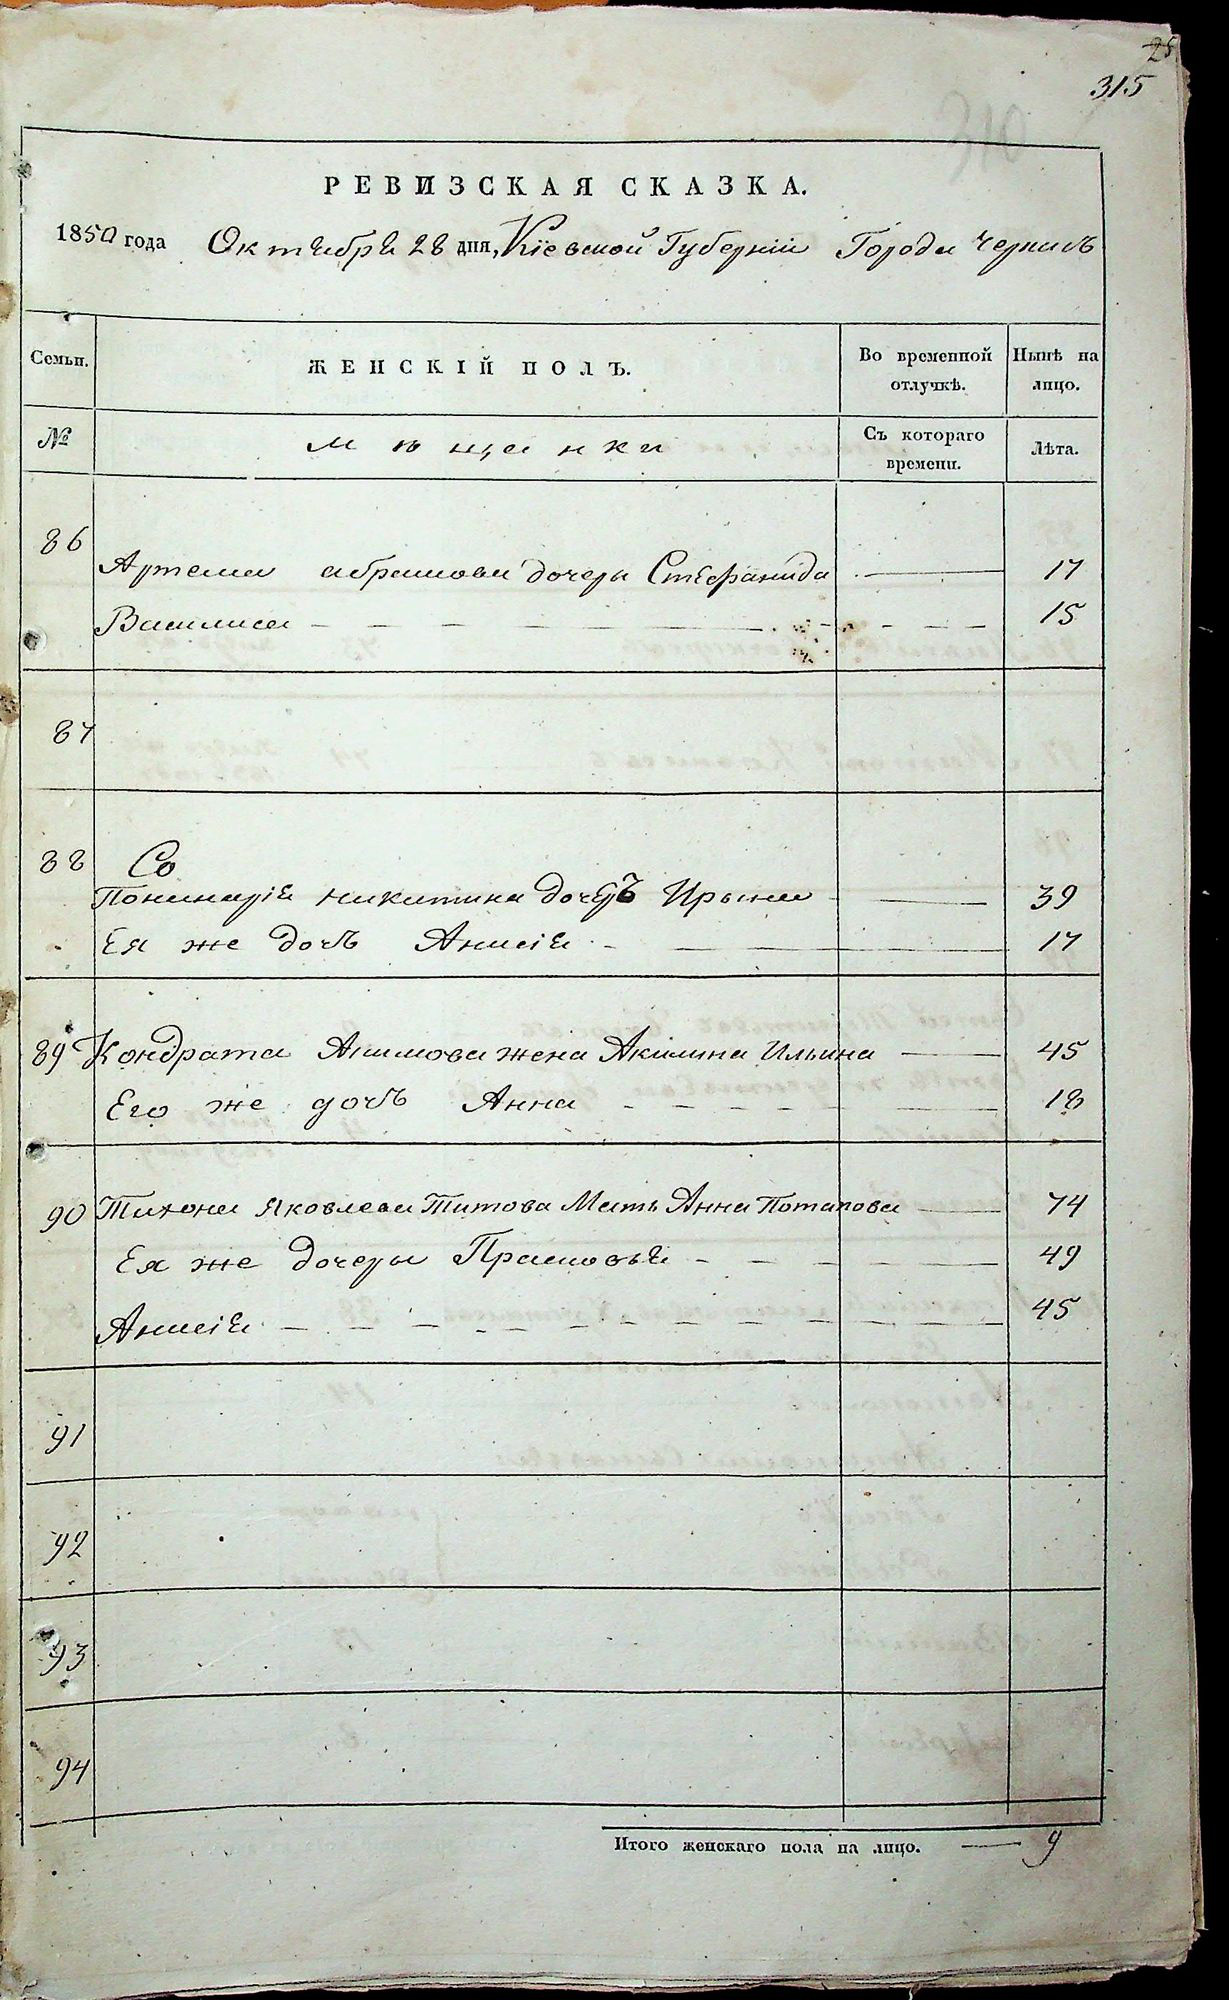 25
315
310
РЕВИЗСКАЯ СКАЗКА.
1850 года Октября 28 дня, Кіевской Губерніи Города Черкасъ
Семьи. ЖЕНСКІЙ ПОЛЪ. Во временной отлучкѣ. Нынѣ на лицо.
№ Мѣщанки Съ котораго времени. Лѣта.
86
Артема Абрамова дочеры Стефанида 17
Василиса 15
87
88 Со
Понкнаріе никитина дочерь Ирына 39
Ея же дочъ Анисіе 17
89 Кондрата Акимова жена Акилина Ильина 45
Его же дочъ Анна 18
90 Тихона Яковлева Титова Мать Анна Потапова 74
Ея же дочеры Прасковье 49
Анисіе 45
91
92
93
94
Итого женскаго пола на лицо. 9